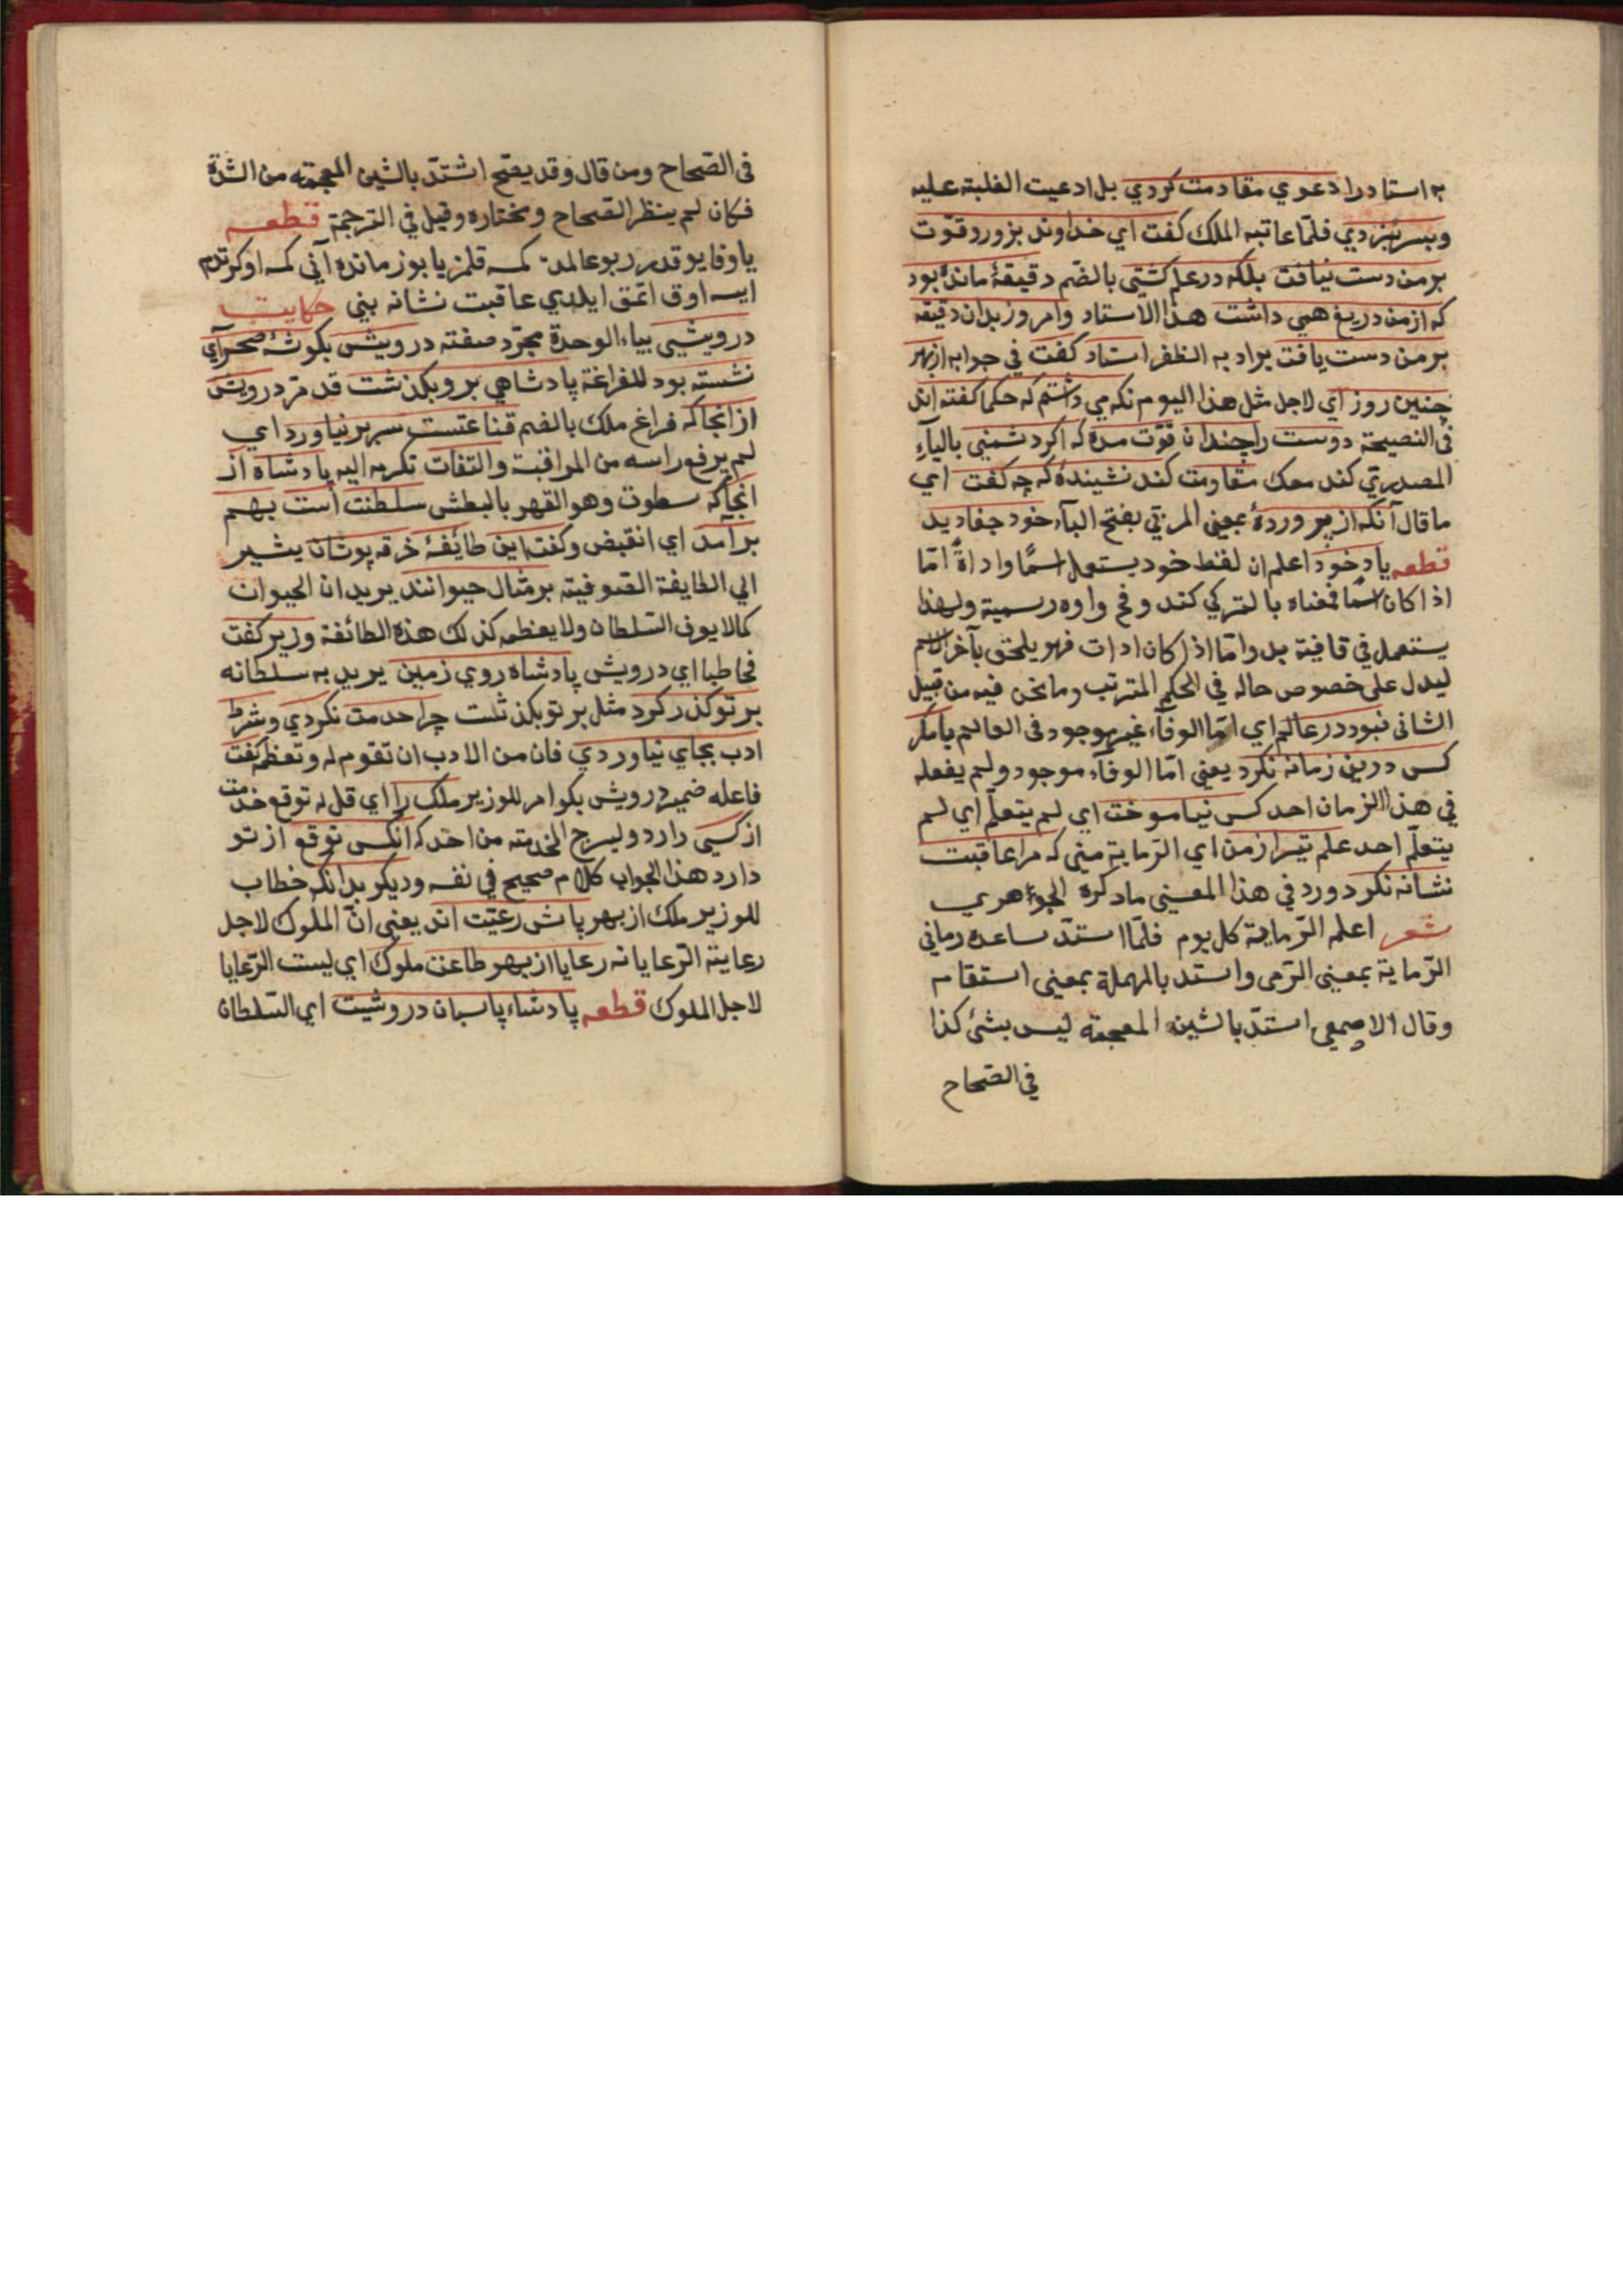 به استاد را دعوي مقاومت كردي بل ادعيت الغلبة عليه
وبسر نبردي فلما عاتبه الملك كفت اي خداوند بزور وقوت
بر من دست نيافت بلكه در علم كشتي بالضم دقيقۀ مانده بود
كه از من دريغ همي داشت هذا الاستاد وامروز بدان دقيقه
بر من دست يافت يراد به الظفر استاد كفت في جوابه از بهر
چنين روز اي لاجل مثل هذا اليوم نكه مي داشتم كه حكما كفته اند
في النصيحة دوست را چندان قوت مده كه اكر دشمني بالياء
المصدري كند معك مقاومت كند نشيندۀ كه چه كفت اي
ما قال آنكه از پروردۀ بمعنى المربي بفتح الباء خود جفا ديد
قطعه يا د خود اعلم ان لفظ خود يستعمل اسمًا واداةً امّا
اذا كان اسمًا فمعناه بالتركي كند و فح واوه رسمية ولهذا
يستعمل في قافية بد واما اذا كان ادات فهو يلحق بآخر الاسم
ليدل على خصوص حاله في الحكم المترتب وما نحن فيه من قبيل
الثاني نبود در عالم اي امّا الوفاء غير موجود في العالم يا مكر
كس درين زمانه نكرد يعني امّا الوفاء موجود ولم يفعله
في هذا الزمان احد كس نياموخت اي لم يتعلّم اي لم
يتعلّم احد علم تير از من اي الرماية مني كه مرا عاقبت
نشانه نكرد ورد في هذا المعنى ما ذكره الجوهري
شعر اعلمه الرماية كل يوم فلمّا استدّ ساعده رماني
الرّماية بمعنى الرّمى واستد بالمهملة بمعنى استقام
وقال الاصمعي اشتدّ بالشين المعجمة ليس بشئ كذا
في الصحاح
في الصحاح ومن قال وقد يفتح اشتدّ بالشين المعجمة من الشدّة
فكان لم ينظر الصحاح ومختاره وقيل في الترجمة قطعه
يا وفا يوقدر ربو عالمده كمسه قلمز يا بو زمانده آني كمسه اوكرندم
ايسه اوق اتمق ايلدي عاقبت نشانه بني حكايت
درويشي بياء الوحدة مجرّد صفته درويش بكوشۀ صحرآي
نشسته بود للفراغة پادشاهي بر و بكذشت قد مرّ درويش
از انجا كه فراغ ملك بالضم قناعتست سر بر نياورد اي
لم يرفع راسه من المراقبة والتفات نكر به اليه پادشاه از
انجا كه سطوت وهو القهر بالبطش سلطنت است بهم
بر آمد اي انقبض وكفت اين طائفۀ خرقه پوشان يشير
الى الطايفة الصوفية بر مثال حيوانند يريد ان الحيوان
كما لا يوف السلطان ولا يعظمه كذلك هذه الطائفة وزير كفت
مخاطبا اي درويش پادشاه روي زمين يريد به سلطانه
بر تو كذر كرد مثل بر تو بكذشت چرا خدمت نكردي وشرط
ادب بجاي نياوردي فان من الادب ان تقوم له وتعظمه كفت
فاعله ضمير درويش بكو امر للوزير ملك را اي قل له توقع خدمت
از كسي دارد وليرج الخدمة من احد كه انكس توقع از تو
دارد هذا الجواب كلام صحيح في نفسه وديكر بدانكه خطاب
للوزير ملك از بهر پاس رعيّت اند يعني انّ الملوك لاجل
رعاية الرّعايا نه رعايا از بهر طاعت ملوك اي ليست الرّعايا
لاجل الملوك قطعه پادشاه پاسبان درويشت اي السّلطان